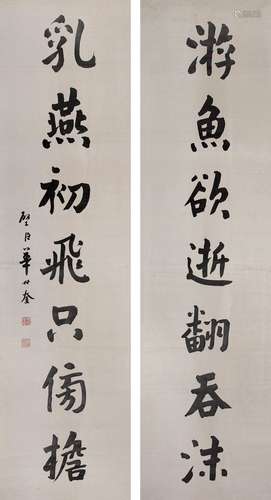 游魚欲逝翻吞沫
乳燕初飛只傍檐
璧臣華世奎